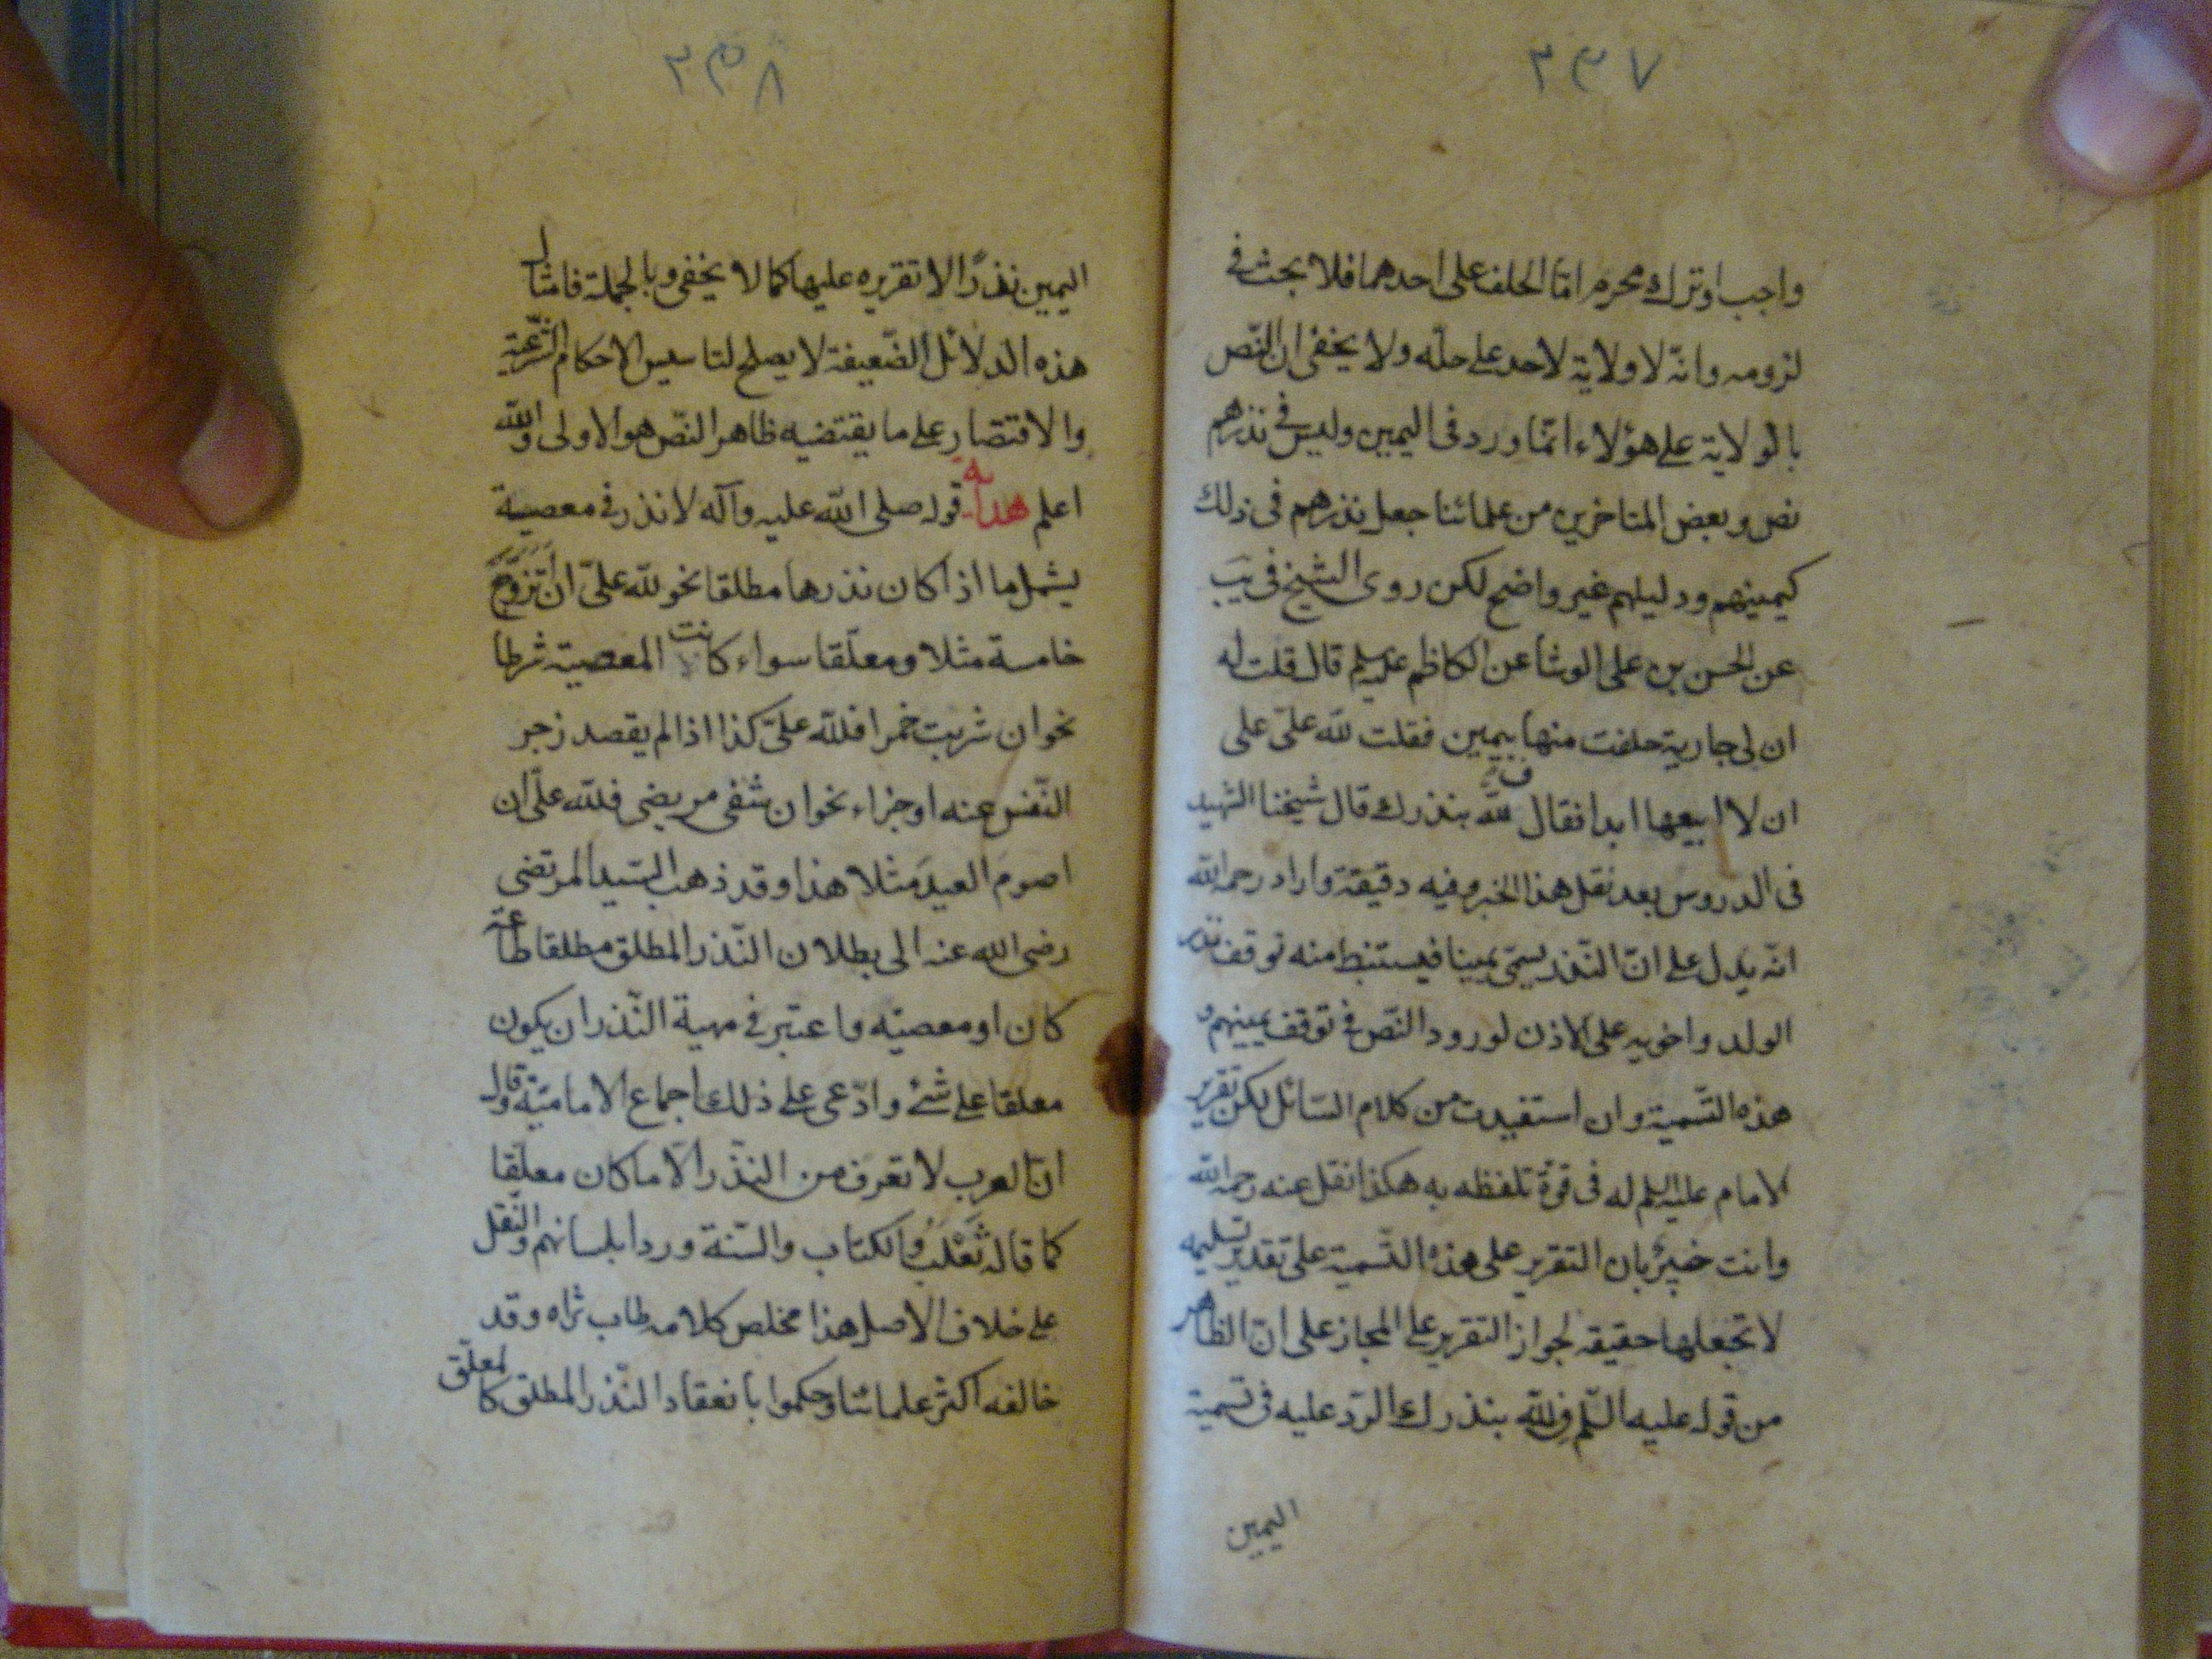 ٢٣٧
واجب او ترك محرم امّا الحلف على احدهما فلا بحث فى
لزومه وانّه لا ولاية لاحد على حلّه ولا يخفى ان النّص
بالولاية على هؤلاء انّما ورد فى اليمين وليس فى نذرهم
نص وبعض المتاخرين من علمائنا جعل نذرهم فى ذلك
كيمينهم ودليلهم غير واضح لكن روى الشيخ فى يَب
عن الحسن بن على الوشا عن الكاظم عليه سلم قال قلت له
ان لى جارية حلفت منها بيمين فقلت للّه علىّ على
ان لا ابيعها ابدا فقال ف للّه بنذرك قال شيخنا الشهيد
فى الدروس بعد نقل هذا الخبر وفيه دقيقة واراد رحمه اللّه
انّه يدل على انّ النّذر يسمّى يمينا فيستنبط منه توقف نذر
الولد واخويه على الاذن لورود النّص فى توقف يمينهم و
هذه التّسمية وان استفيدت من كلام السّائل لكن تقرير
الامام عليه السلم له فى قوّة تلفظه به هكذا نقل عنه رحمه اللّه
وانت خبيرٌ بان التقرير على هذه التّسمية على تقدير تسليمه
لا تجعلها حقيقه لجواز التقرير على المجاز على انّ الظاهر
من قوله عليه السّلم فِ للّه بنذرك الردّ عليه فى تسمية
اليمين
٢٣٨
اليمين نذرًا لا تقريره عليها كما لا يخفى وبالجملة فامثال
هذه الدلائل الضّعيفة لا يصلح لتاسيس الاحكام الشّرعيّة
والاقتصار على ما يقتضيه ظاهر النّص هو الاولى واللّه
اعلم هداية قوله صلى اللّه عليه وآله لا نذر فى معصية
يشمل ما اذا كان نذرها مطلقا نحو للّه علىّ ان اَتزوّجَ
خامسة مثلا ومعلّقا سواء كانت المعصية شرطا
نحو ان شربت خمرا فللّه علىّ كذا اذا لم يقصد زجر
النّفس عنه او جزاء نحو ان شفى مريضى فللّه علىّ ان
اصومَ العيدَ مثلا هذا وقد ذهب السّيد المرتضى
رضى الله عنه الى بطلان النّذر المطلق مطلقا طاعة
كان او معصيته واعتبر فى مهية النّذر ان يكون
معلقا على شئ وادّعى على ذلك اجماع الاماميّة وقال
انّ العرب لا تعرف من النذّر الّا ما كان معلّقا
كما قاله ثَعْلَبُ والكتاب والسّنة وردا بلسانهم والنّقل
على خلاف الاصل هذا مخلص كلامه طاب ثراه وقد
خالفه اكثر علمائنا وحكموا بانعقاد النّذر المطلق كالمعلّق